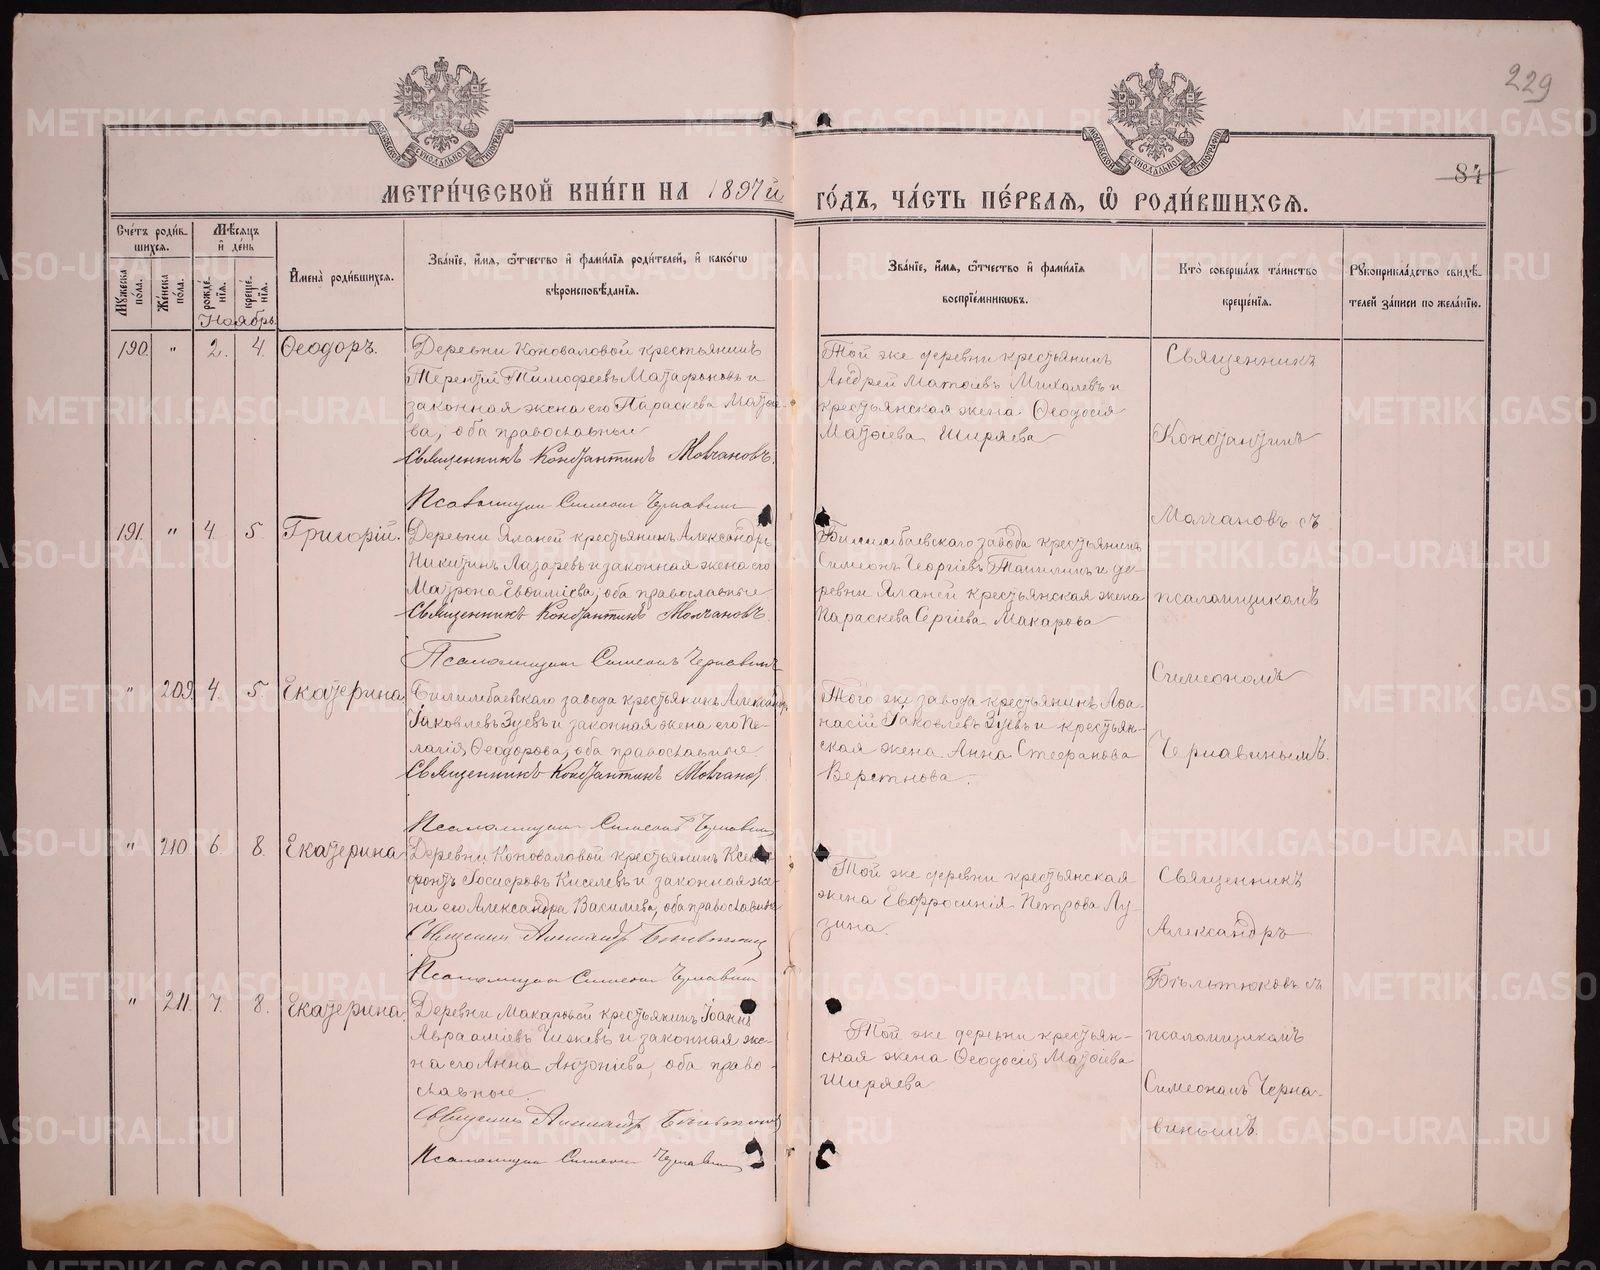 229
87
МЕТРИ́ЧЕСКОЙ КНИ́ГИ НА 1897й ГО́ДЪ, ЧА́СТЬ ПЕ́РВАѦ, Ѡ҆ РОДИ́ВШИХСѦ.
Сче́тъ роди́в-
шихся.
Мѣ́сяцъ
и҆ де́нь
Му́жеска
по́ла.
Же́нска
по́ла.
рожде-
нїя.
креще-
нїя.
Ноябрь.
И҆мена̀ роди́вшихся.
Зва́нїе, и҆́мя, ѻ҆́тчество и҆ фамѝлїя роди́телей, и҆ како́гѡ
вѣроисповѣ́данїя.
Зва́нїе, и҆́мя, ѻ҆́тчество и҆ фамѝлїя
воспрїе́мникѡвъ.
Кто̀ соверша́лъ та́инство
креще́нїя.
Рукоприкла́дство свидѣ́-
телей за́писи по жела́нїю.
190. " 2. 4. Ѳеодоръ.
Деревни Коноваловой крестьянинъ
Терентій Тимофеевъ Матафоновъ и
законная жена его Параскева Матѳіе-
ва, оба православные
Священникъ Константинъ Молчановъ.
Псаломщикъ Симеонъ Чернавинъ
Той же деревни крестьянинъ
Андрей Матѳіевъ Михалевъ и
крестьянская жена Ѳеодосія
Матѳіева Ширяева
Священникъ
Константинъ
Молчановъ съ
псаломщикомъ
Симеономъ
Чернавинымъ.
191. " 4. 5. Григорій.
Деревни Яланей крестьянинъ Александръ
Никитинъ Лазаревъ и законная жена его
Матрона Евѳиміева, оба православные
Священникъ Константинъ Молчановъ
Псаломщикъ Симеонъ Чернавинъ
Билимбаевскаго завода крестьянинъ
Симеонъ Георгіевъ Томилинъ и де-
ревни Яланей крестьянская жена
Параскева Сергіева Макарова
" 209. 4. 5. Екатерина.
Билимбаевскаго завода крестьянинъ Александръ
Іаковлевъ Зуевъ и законная жена его Пе-
лагія Ѳеодорова, оба православные
Священникъ Константинъ Молчановъ
Псаломщикъ Симеонъ Чернавинъ
Того же завода крестьянинъ Аѳа-
насій Іаковлевъ Зуевъ и крестьян-
ская жена Анна Стефанова
" 210 6. 8. Екатерина.
Деревни Коноваловой крестьянинъ Ксено-
фонтъ Іосифовъ Киселевъ и законная же-
на его Александра Василіева, оба православные
Священникъ Александръ Бѣльтюковъ
Псаломщикъ Симеонъ Чернавинъ
Той же деревни крестьянская
жена Евфросинія Петрова Лу-
зина.
Священникъ
Александръ
Бѣльтюковъ съ
псаломщикомъ
Симеономъ Черна-
винымъ.
" 211. 7. 8. Екатерина.
Деревни Макаровой крестьянинъ Іоаннъ
Авраміевъ Чижевъ и законная же-
на его Анна Антоніева, оба право-
славные.
Священникъ Александръ Бѣльтюковъ
Псаломщикъ Симеонъ Чернавинъ
Той же деревни крестьян-
ская жена Ѳеодосія Матѳіева
Ширяева